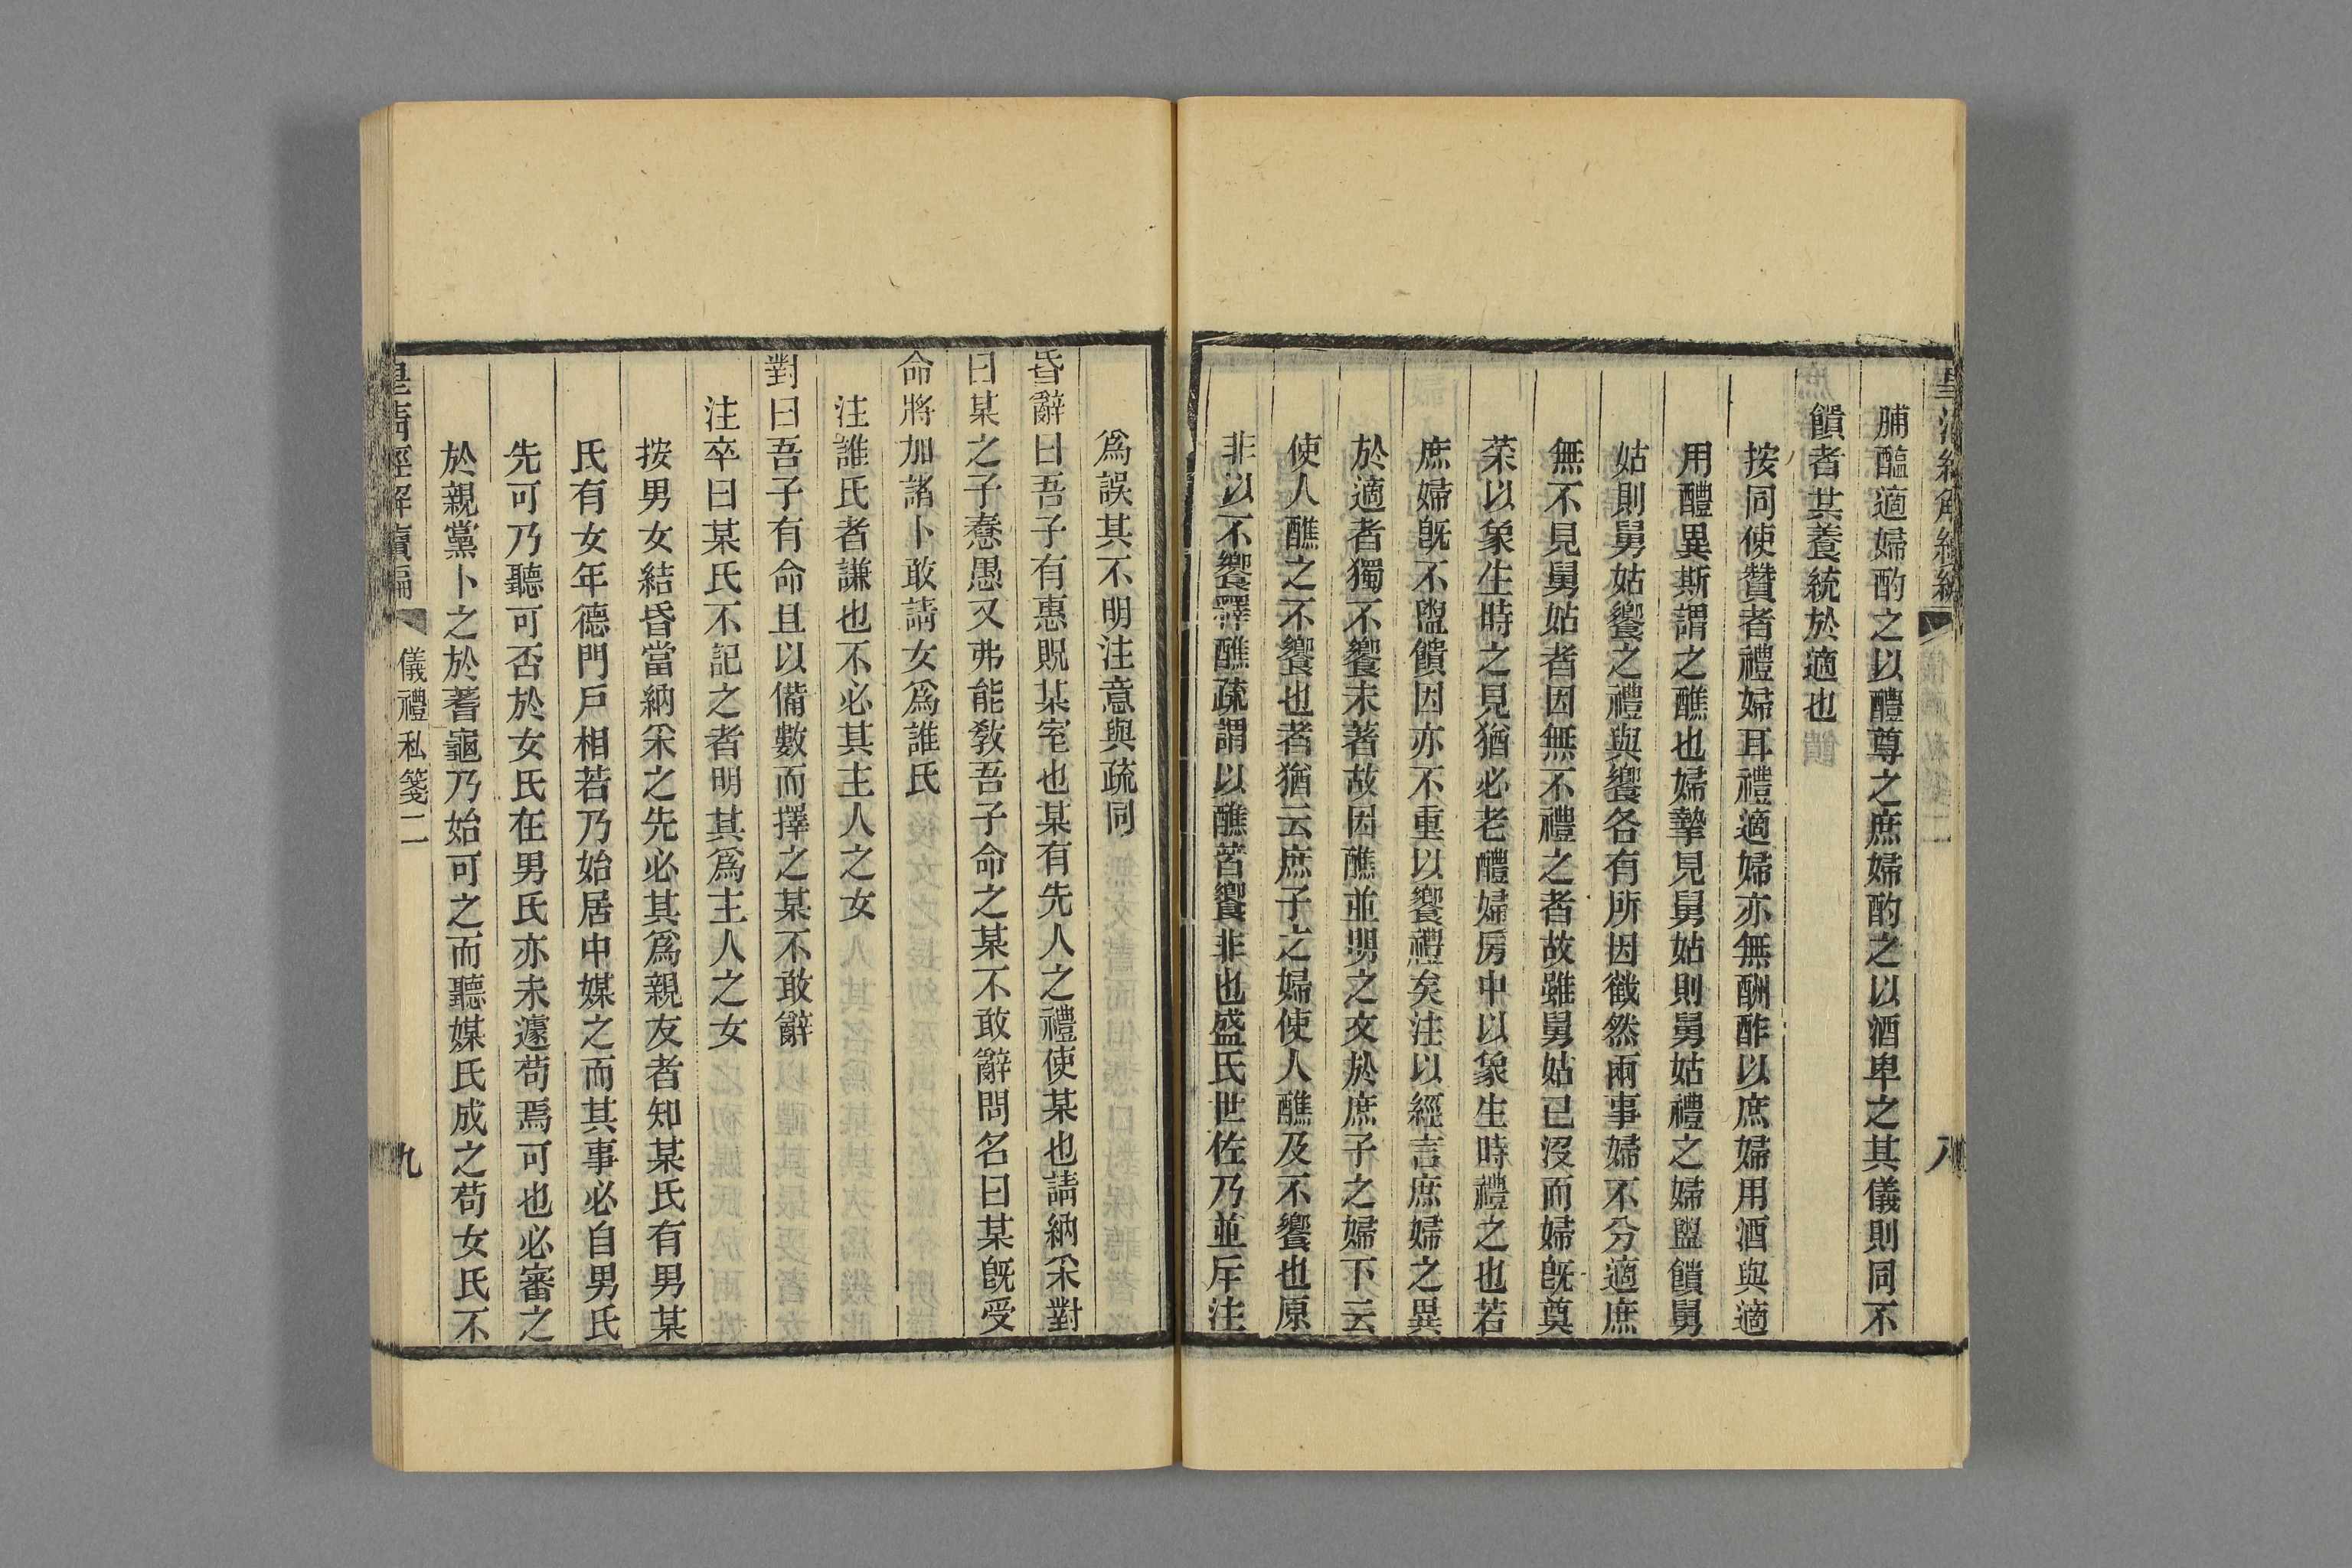 脯醢適婦酌之以醴尊之庶婦酌之以酒卑之其儀則同不
饋者其養統於適也
按同使贊者禮婦耳禮適婦亦無酬酢以庶婦用酒與適
用醴異斯謂之醮也婦摯見舅姑則舅姑禮之婦盥饋舅
姑則舅姑饗之禮與饗各有所因截然兩事婦不分適庶
無不見舅姑者因無不禮之者故雖舅姑已沒而婦旣奠
菜以象生時之見猶必老醴婦房中以象生時禮之也若
庶婦旣不盥饋因亦不重以饗禮矣注以經言庶婦之異
於適者獨不饗未著故因醮並明之文於庶子之婦下云
使人醮之不饗也者猶云庶子之婦使人醮及不饗也原
非以不饗釋醮疏謂以醮荅饗非也盛氏世佐乃並斥注
八
爲誤其不明注意與疏同
昏辭曰吾子有惠貺某室也某有先人之禮使某也請納采對
曰某之子惷愚又弗能敎吾子命之某不敢辭問名曰某旣受
命將加諸卜敢請女爲誰氏
注誰氏者謙也不必其主人之女
對曰吾子有命且以備數而擇之某不敢辭
注卒曰某氏不記之者明其爲主人之女
按男女結昏當納采之先必其爲親友者知某氏有男某
氏有女年德門戶相若乃始居中媒之而其事必自男氏
先可乃聽可否於女氏在男氏亦未遽苟焉可也必審之
於親黨卜之於蓍龜乃始可之而聽媒氏成之苟女氏不
皇淸經解續編
儀禮私箋二
九